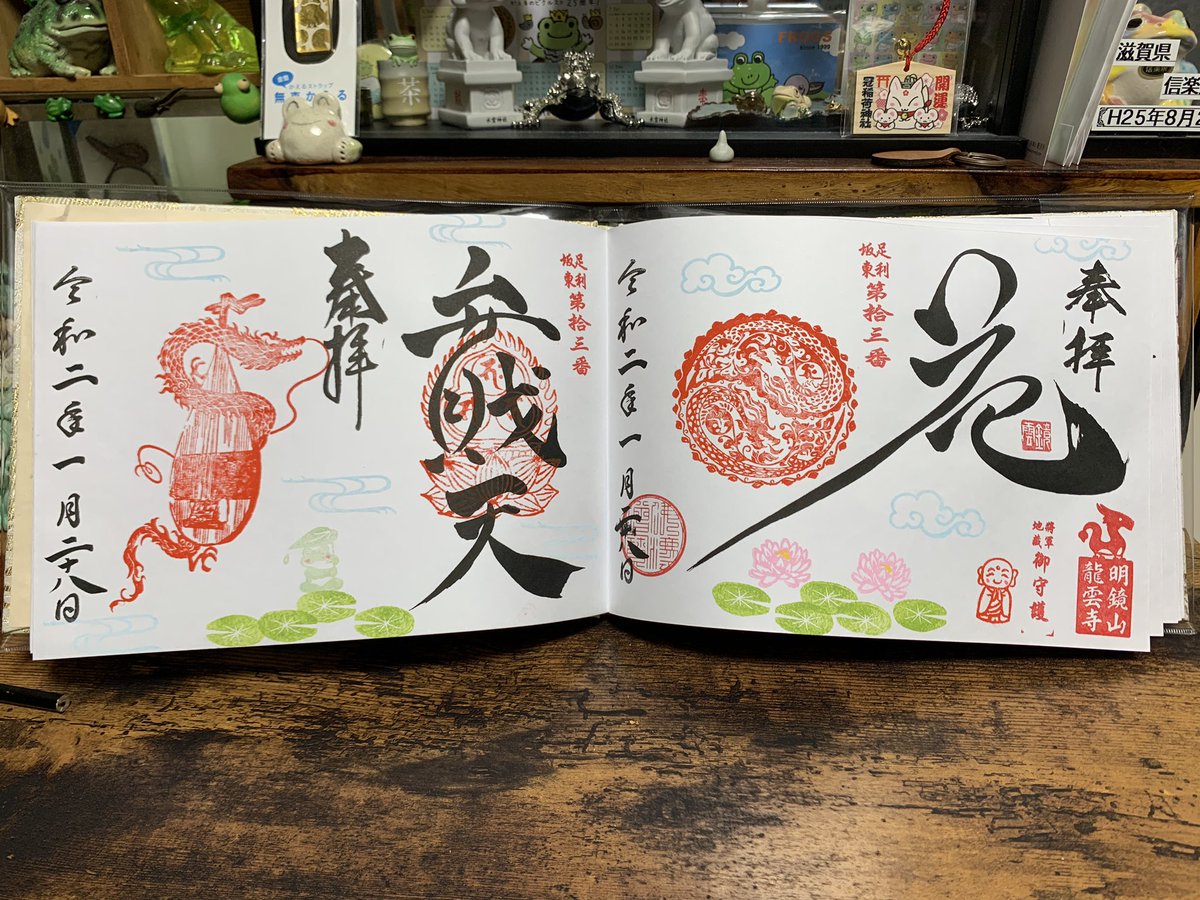 奉拝
花
鏡雲
足利
坂東
第拾三番
令和二年一月二十八日
将軍
地蔵
御守護
明鏡山
龍雲寺
足利
坂東
第拾三番
弁財天
奉拝
令和二年一月二十八日
茶
FROGS
Since 1999
開運
滋賀県
信楽
H25年8月2
かえるストラップ
無事かえる